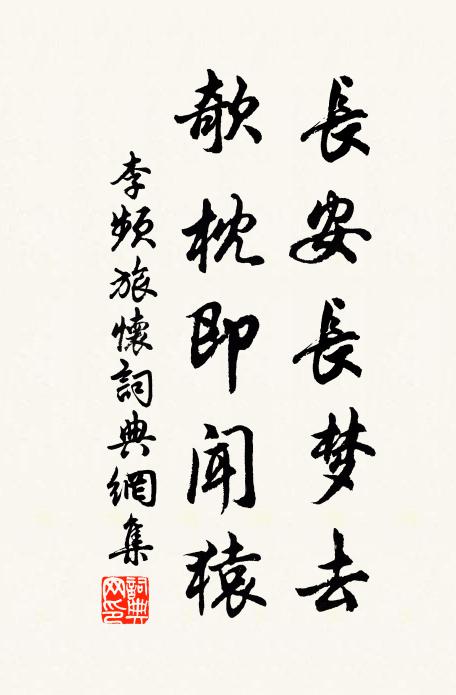 長安長梦去
欹枕即闻猿
李频旅懷詞典網集
詞典网印